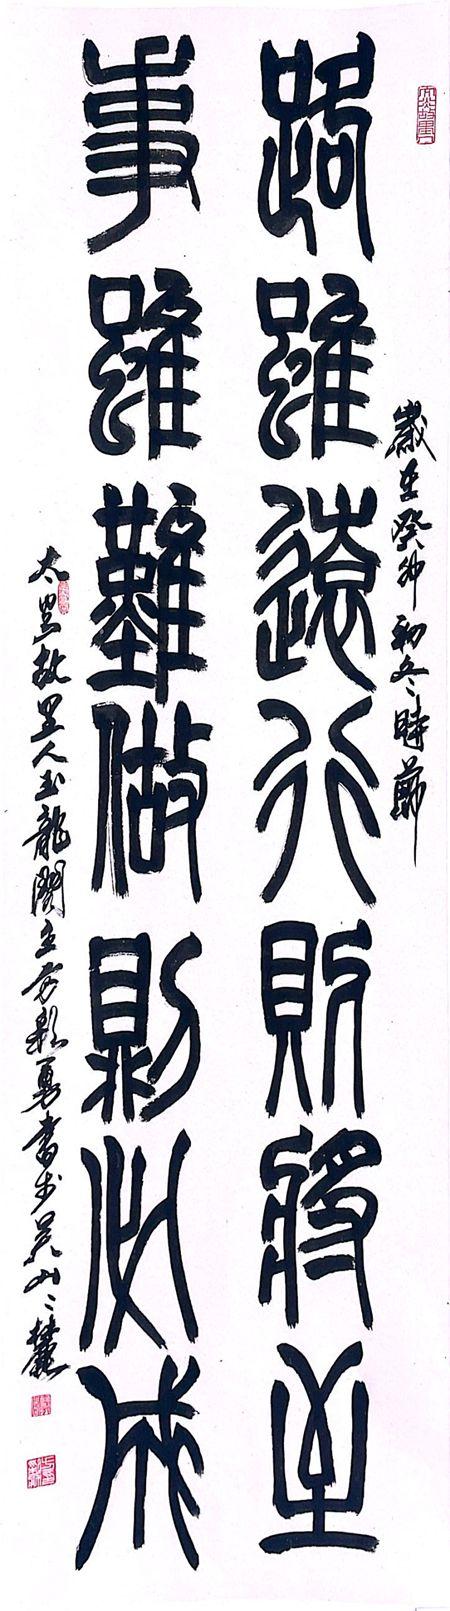 路雖遠行則將至
事雖難做則必成
歲在癸卯初冬時節
太昊故里人玉龍閣主方彩勇書於吴山之麓